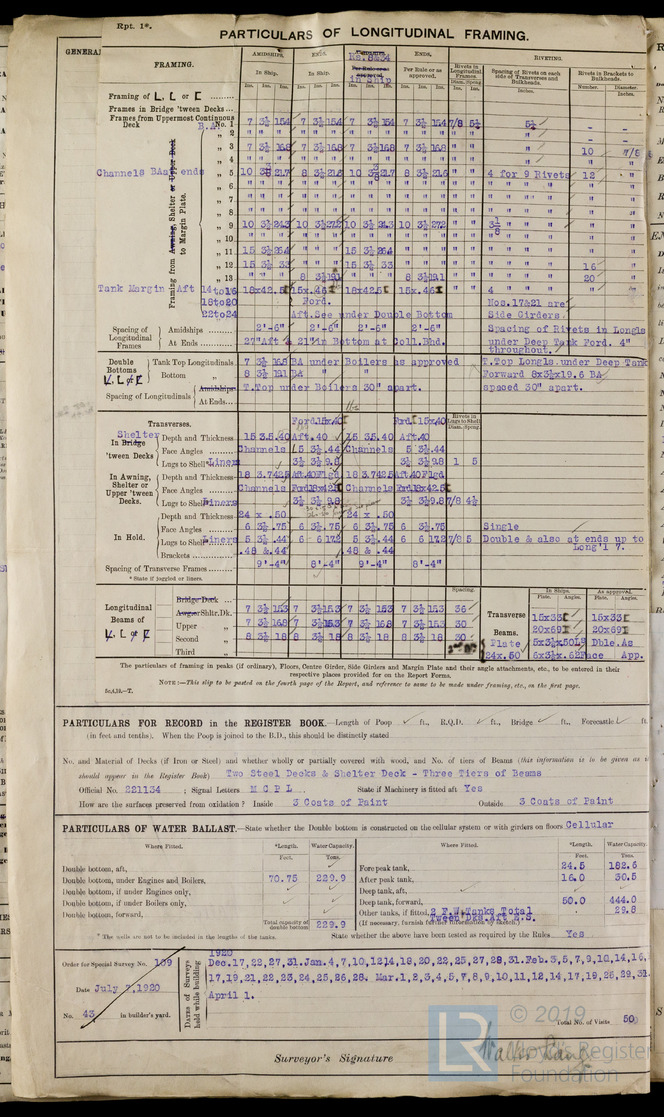 Rpt. 1*.
PARTICULARS OF LONGITUDINAL FRAMING.
GENERAL
FRAMING.
AMIDSHIPS.
ENDS.
No. 8334
in Ship
ENDS.
RIVETING.
In Ship.
In Ship.
Per Rule or as approved.
Rivets in Longitudinal Frames.
Spacing of Rivets on each side of Transverses and Bulkheads.
Rivets in Brackets to Bulkheads.
Ins. Ins. Ins. Ins. Ins. Ins. Ins. Ins. Ins. Ins. Ins. Ins. Diam. Spcng. Inches. Number. Diameter. Inches.
Framing of L, L or [
Frames in Bridge 'tween Decks
Frames from Uppermost Continuous
Deck B.A. No. 1 7 3½ 154 7 3½ 154 7 3½ 154 7 3½ 154 7/8 5¼ 5¼
" 2
" 3 7 3½ 168 7 3½ 168 7 3½ 168 7 3½ 168 " " " 10 7/8
" 4
Channels BA at ends " 5 10 3⅜ 217 8 3½ 216 10 3⅜ 217 8 3½ 216 " " 4 for 9 Rivets 12 "
" 6
" 7
" 8
" 9 10 3½ 243 10 3½ 272 10 3½ 243 10 3½ 272 " " 3⅛ " "
" 10
" 11 15 3½ 264 15 3½ 264
" 12 15 3½ 33 15 3½ 33 16 "
" 13 8 3½ 191 8 3½ 191 20 "
Framing from Awning, Shelter or Upper Deck to Margin Plate.
Tank Margin Aft 14 to 16 18x42.5[ 15x.46[ 18x42.5[ 15x.46[ " " 4 " "
18to20 Ford. Nos.17&21 are
22to24 Aft.See under Double Bottom Side Girders.
Spacing of Longitudinal Frames
Amidships 2'-6" 2'-6" 2'-6" 2'-6" Spacing of Rivets in Longls
At Ends 27"Aft & 21½in Bottom at Coll.Bhd. under Deep Tank Ford. 4"
throughout.
Double Bottoms
L, L or [
Tank Top Longitudinals 7 3½ 165 BA under Boilers as approved T.Top Longls.under Deep Tank
Bottom " 8 3½ 191 BA " " Forward 8x3½x19.6 BA
Spacing of Longitudinals Amidships T.Top under Boilers 30" apart. spaced 30" apart.
At Ends
Transverses.
Rivets in Lugs to Shell
Diam. Spcng.
Ford.15x40[ Ford.15x40[
Shelter
In Bridge 'tween Decks.
Depth and Thickness 15 3.5.40 Aft.40 15 3.5.40 Aft.40
Face Angles Channels 5 3½ .44 Channels 5 3½ .44
Lugs to Shell* Liners 3½ 3½ 9.8 3½ 3½ 9.8 1 5
In Awning, Shelter or Upper 'tween Decks.
Depth and Thickness 18 3.7425 Aft.40Flgd 18 3.7425 Aft.40Flgd.
Face Angles Channels Ford18x42[ Channels Ford18x42.5[
Lugs to Shell* Liners 3½ 3½ 9.8 3½ 3½ 9.8 7/8 4½
In Hold.
Depth and Thickness 24 x .50 24 x .50
Face Angles 6 3½ .75 6 3½ .75 6 3½ .75 6 3½ .75 Single
Lugs to Shell* Liners 5 3½ .44 6 6 172 5 3½ .44 6 6 172 7/8 5 Double & also at ends up to
Brackets .48 & .44 .48 & .44 Long'l 7.
Spacing of Transverse Frames 9'-4" 8'-4" 9'-4" 8'-4"
* State if joggled or liners.
Longitudinal Beams of L, L or [
Spacing.
Bridge Deck
Awngor Shltr.Dk. 7 3½ 153 7 3½ 153 7 3½ 153 7 3½ 153 36
Upper " 7 3½ 168 7 3½ 153 7 3½ 168 7 3½ 153 30
Second " 8 3½ 18 8 3½ 18 8 3½ 18 8 3½ 18 30
Third "
Transverse Beams.
In Ships. As approved.
Plate. Angles. Plate. Angles.
15x33[ 15x33[
20x69[ 20x69[
Plate 5x3½x50LS Dble.As
24x.50 6x3½x.62Face App.
The particulars of framing in peaks (if ordinary), Floors, Centre Girder, Side Girders and Margin Plate and their angle attachments, etc., to be entered in their
respective places provided for on the Report Forms.
NOTE:—This slip to be posted on the fourth page of the Report, and reference to same to be made under framing, etc., on the first page.
5c,4,19.—T.
PARTICULARS FOR RECORD in the REGISTER BOOK.—Length of Poop ✓ ft., R.Q.D. ✓ ft., Bridge ✓ ft., Forecastle ✓ ft.
(in feet and tenths). When the Poop is joined to the B.D., this should be distinctly stated
No. and Material of Decks (if Iron or Steel) and whether wholly or partially covered with wood, and No. of tiers of Beams (this information is to be given as it
should appear in the Register Book) Two Steel Decks & Shelter Deck - Three Tiers of Beams
Official No. 221134 ; Signal Letters M C P L State if Machinery is fitted aft Yes
How are the surfaces preserved from oxidation? Inside 3 Coats of Paint Outside 3 Coats of Paint
PARTICULARS OF WATER BALLAST.—State whether the Double bottom is constructed on the cellular system or with girders on floors Cellular
Where Fitted. *Length. Water Capacity. Where Fitted. *Length. Water Capacity.
Feet. Tons. Feet. Tons.
Double bottom, aft, Fore peak tank, 24.5 182.6
Double bottom, under Engines and Boilers, 70.75 229.9 After peak tank, 16.0 30.5
Double bottom, if under Engines only, Deep tank, aft,
Double bottom, if under Boilers only, Deep tank, forward, 50.0 444.0
Double bottom, forward, Other tanks, if fitted, 2 F.W.Tanks Total 29.8
Total capacity of double bottom 229.9 (If necessary, furnish further information by sketch.) Tween Dks.Aft E.S.
* The wells are not to be included in the lengths of the tanks. State whether the above have been tested as required by the Rules Yes
Order for Special Survey No. 109
Date July 7,1920
No. 43 in builder's yard.
Dates of Surveys held while building
1920
Dec.17,22,27,31.Jan.4,7,10,12,14,19,20,22,25,27,28,31.Feb.3,5,7,9,10,14,16,
17,19,21,22,23,24,25,26,28. Mar.1,2,3,4,5,7,8,9,10,11,12,14,17,19,25,29,31.
April 1.
Total No. of Visits 50
Surveyor's Signature
© 2019
LR
Lloyd's Register
Foundation